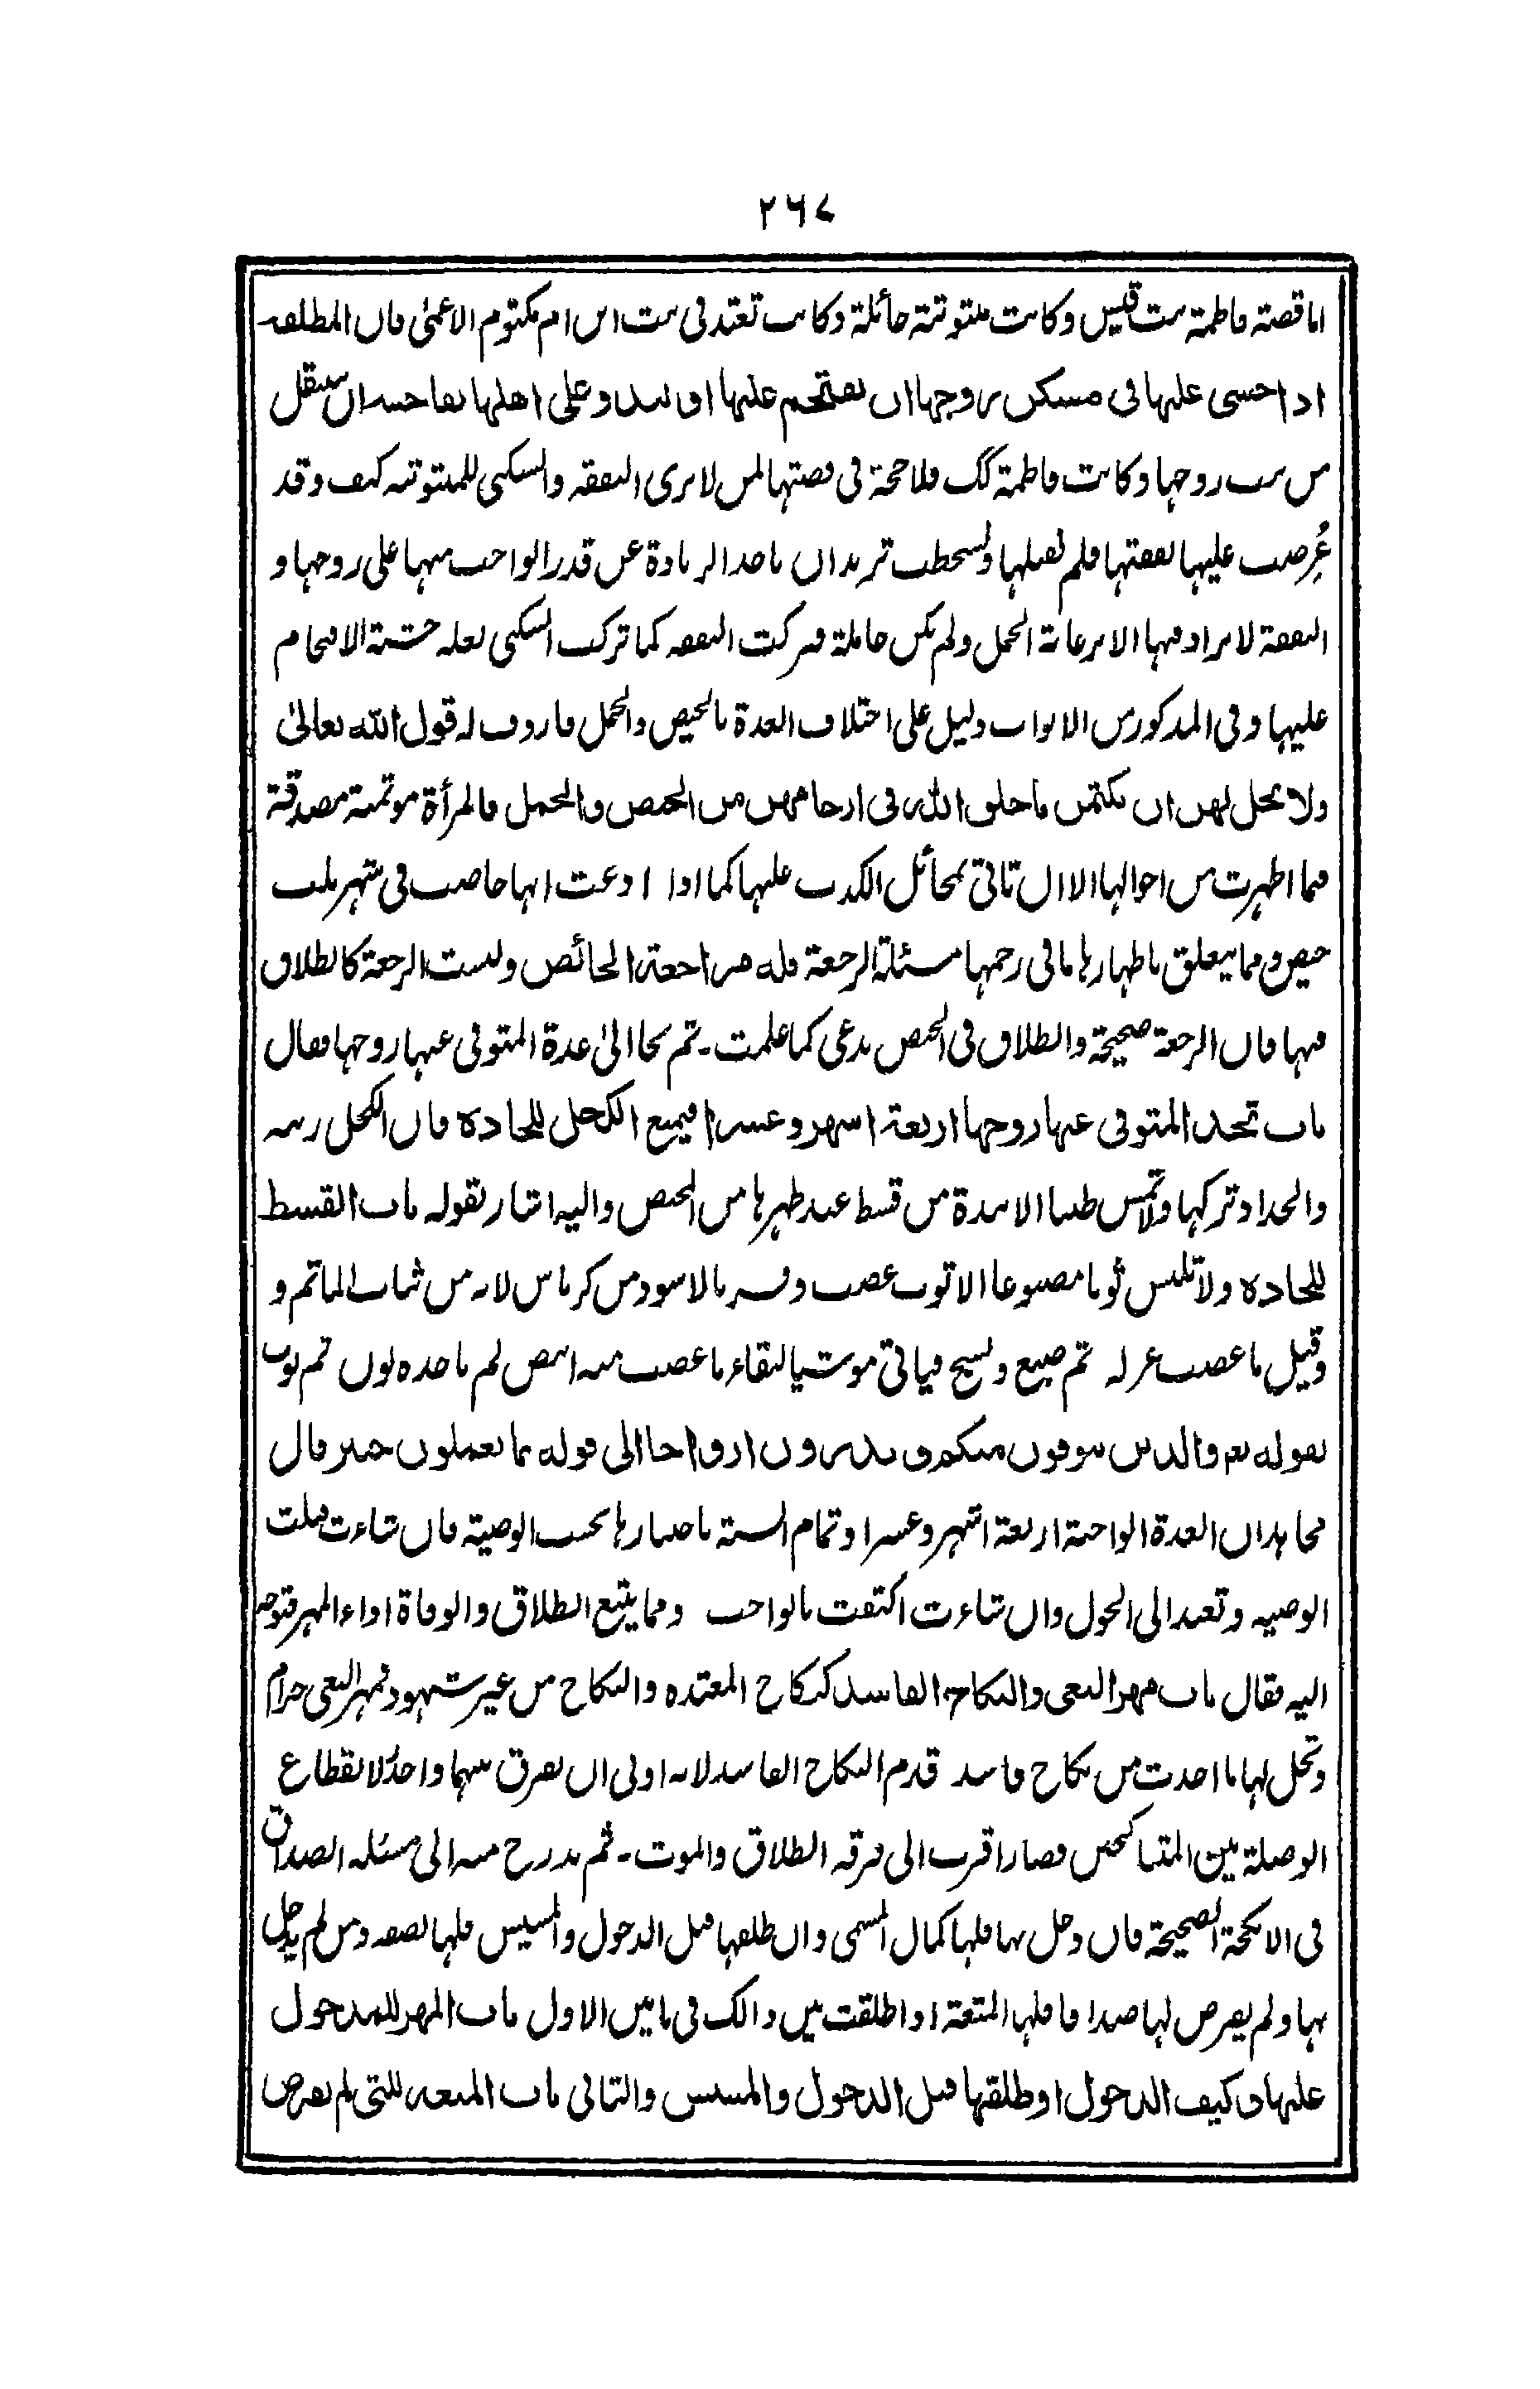 ٢٦٧
اما قصة فاطمة بنت قيس وكانت مبتوتة حائلة وكانت تعتد في بيت ابن ام مكتوم الاعمىٰ فان المطلقة
اذا خشي عليها في مسكن زوجها ان يقتحم عليها او تبذو على اهلها بفاحشة ان ينتقل
من بيت زوجها وكانت فاطمة كك فلا حجة في قصتها لمن لا يرى النفقة والسكنى للمبتوتة كيف وقد
عُرِضت عليها نفقتها فلم تقبلها وتسخطت تريد ان ياخذ الزيادة عن قدر الواجب منها على زوجها و
النفقة لا يزاد فيها الا برعاية الحمل ولم يكن حاملة فتركت النفقه كما تركت السكنى لعله خشية الاقتحام
عليها وفي المذكور من الابواب دليل على اختلاف العدة بالحيض والحمل فاردف له قول الله تعالىٰ
ولا يحل لهن ان يكتمن ما خلق الله في ارحامهن من الحيض والحمل فالمرأة موتمنة مصدقة
فيما اظهرت من احوالها الا ان تاتي بمخائل الكذب عليها كما اذا ادعت انها حاضت في شهر ثلث
حيض ومما يتعلق باظهارها ما في رحمها مسئلة الرجعة فله مراجعة الحائض وليست الرجعة كالطلاق
فيها فان الرجعة صحيحة والطلاق في الحيض بدعي كما علمت۔ ثم نحا الىٰ عدة المتوفى عنها زوجها فقال
باب تحد المتوفى عنها زوجها اربعة اشهر وعشرا فيمنع الكحل للحادة فان الكحل زينة
والحداد تركها ولا تمس طيبا الا نبذة من قسط عند طهرها من الحيض واليه اشار بقوله باب القسط
للحادة ولا تلبس ثوبا مصبوغا الا ثوب عصب وفسر بالاسود من كرباس لانه من ثياب الماتم و
وقيل ما عصب غزله ثم صبغ ونسج فياتي موشيا لبقاء ما عصب منه ابيض لم ياخذه لون ثم بوب
بقوله تع والذين يتوفون منكم و يذرون ازواجا الى قوله بما تعملون خبير قال
مجاهد ان العدة الواجبة اربعة اشهر وعشرا وتمام السنة باختيارها بحسب الوصية فان شاءت قبلت
الوصيه وتعتد الى الحول وان شاءت اكتفت بالواجب ومما يتبع الطلاق والوفاة اداء المهر فتوجه
اليه فقال باب مهر البغي والنكاح الفاسد كنكاح المعتده والنكاح من غير شهود فمهر البغي حرام
وتحل لها ما اخذت من نكاح فاسد قدم النكاح الفاسد لانه اولى ان يفرق بينهما واحدٌ لانقطاع
الوصلة بين المتناكحين فصار اقرب الى فرقه الطلاق والموت۔ ثم تدرج منه الى مسئلة الصداق
في الانكحة الصحيحة فان دخل بها فلها كمال المسمى وان طلقها قبل الدخول والمسيس فلها نصفه ومن لم يدخل
بها ولم يفرض لها صداقا فلها المتعة اذا طلقت بين ذالك في بابين الاول باب المهر للمدخول
عليها وكيف الدخول او طلقها قبل الدخول والمسيس والثاني باب المتعة للتي لم يفرض